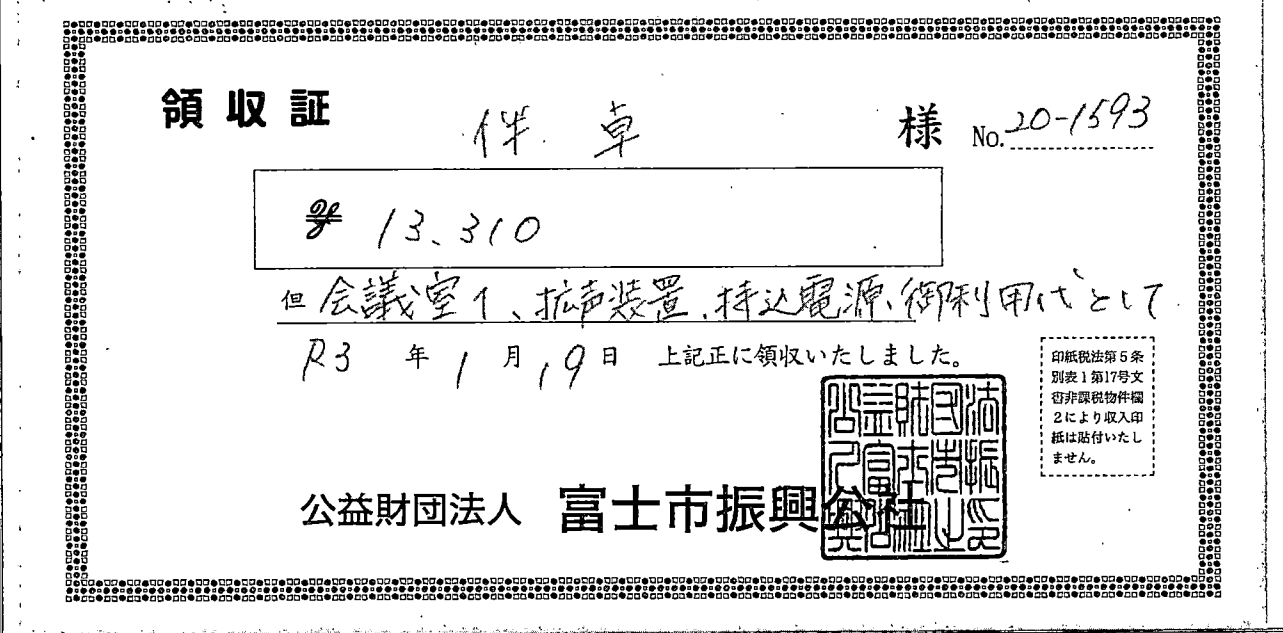 領収証
伴 卓 様 No. 20-1593
¥ 13,310
但 会議室1、拡声装置、持込電源、御利用代として
R3 年 1 月 19 日 上記正に領収いたしました。
印紙税法第5条
別表1第17号文
書非課税物件欄
2により収入印
紙は貼付いたし
ません。
公益財団法人 富士市振興公社